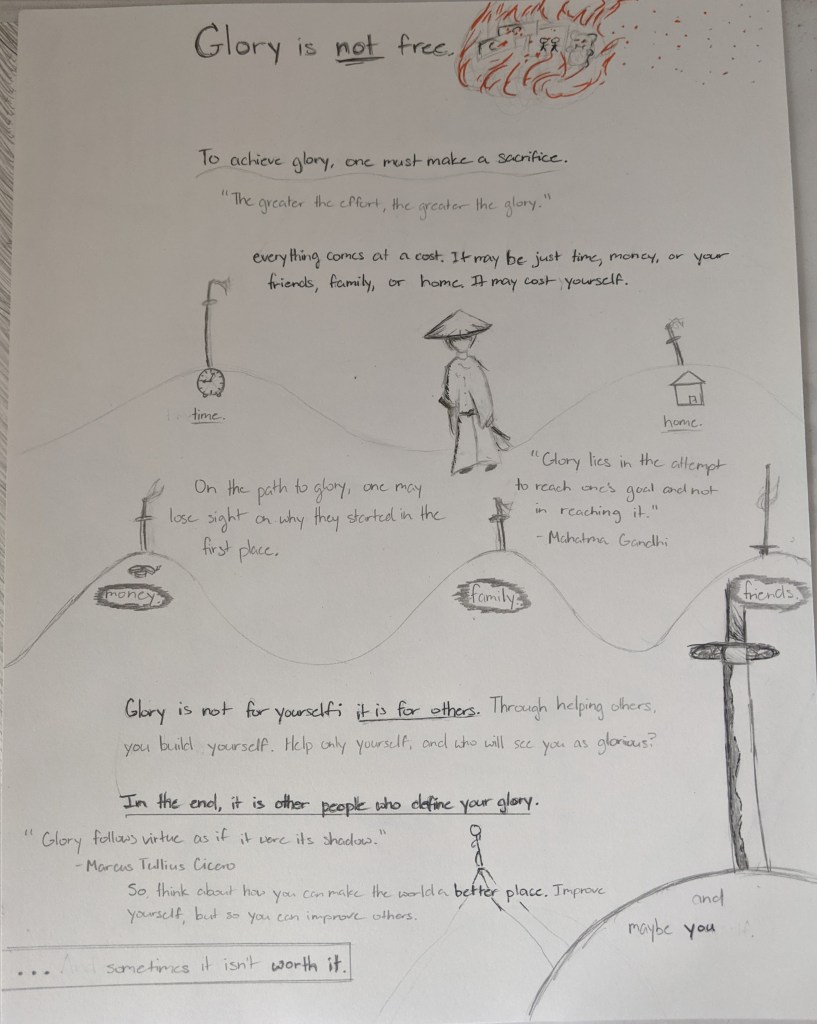 Glory is not free.
To achieve glory, one must make a sacrifice.
"The greater the effort, the greater the glory."
everything comes at a cost. It may be just time, money, or your
friends, family, or home. It may cost yourself.
time.
home.
On the path to glory, one may
lose sight on why they started in the
first place.
"Glory lies in the attempt
to reach one's goal and not
in reaching it."
- Mahatma Gandhi
money.
family.
friends.
Glory is not for yourself; it is for others. Through helping others,
you build yourself. Help only yourself, and who will see you as glorious?
In the end, it is other people who define your glory.
"Glory follows virtue as if it were its shadow."
- Marcus Tullius Cicero
So, think about how you can make the world a better place. Improve
yourself, but so you can improve others.
and
maybe you
... And sometimes it isn't worth it.